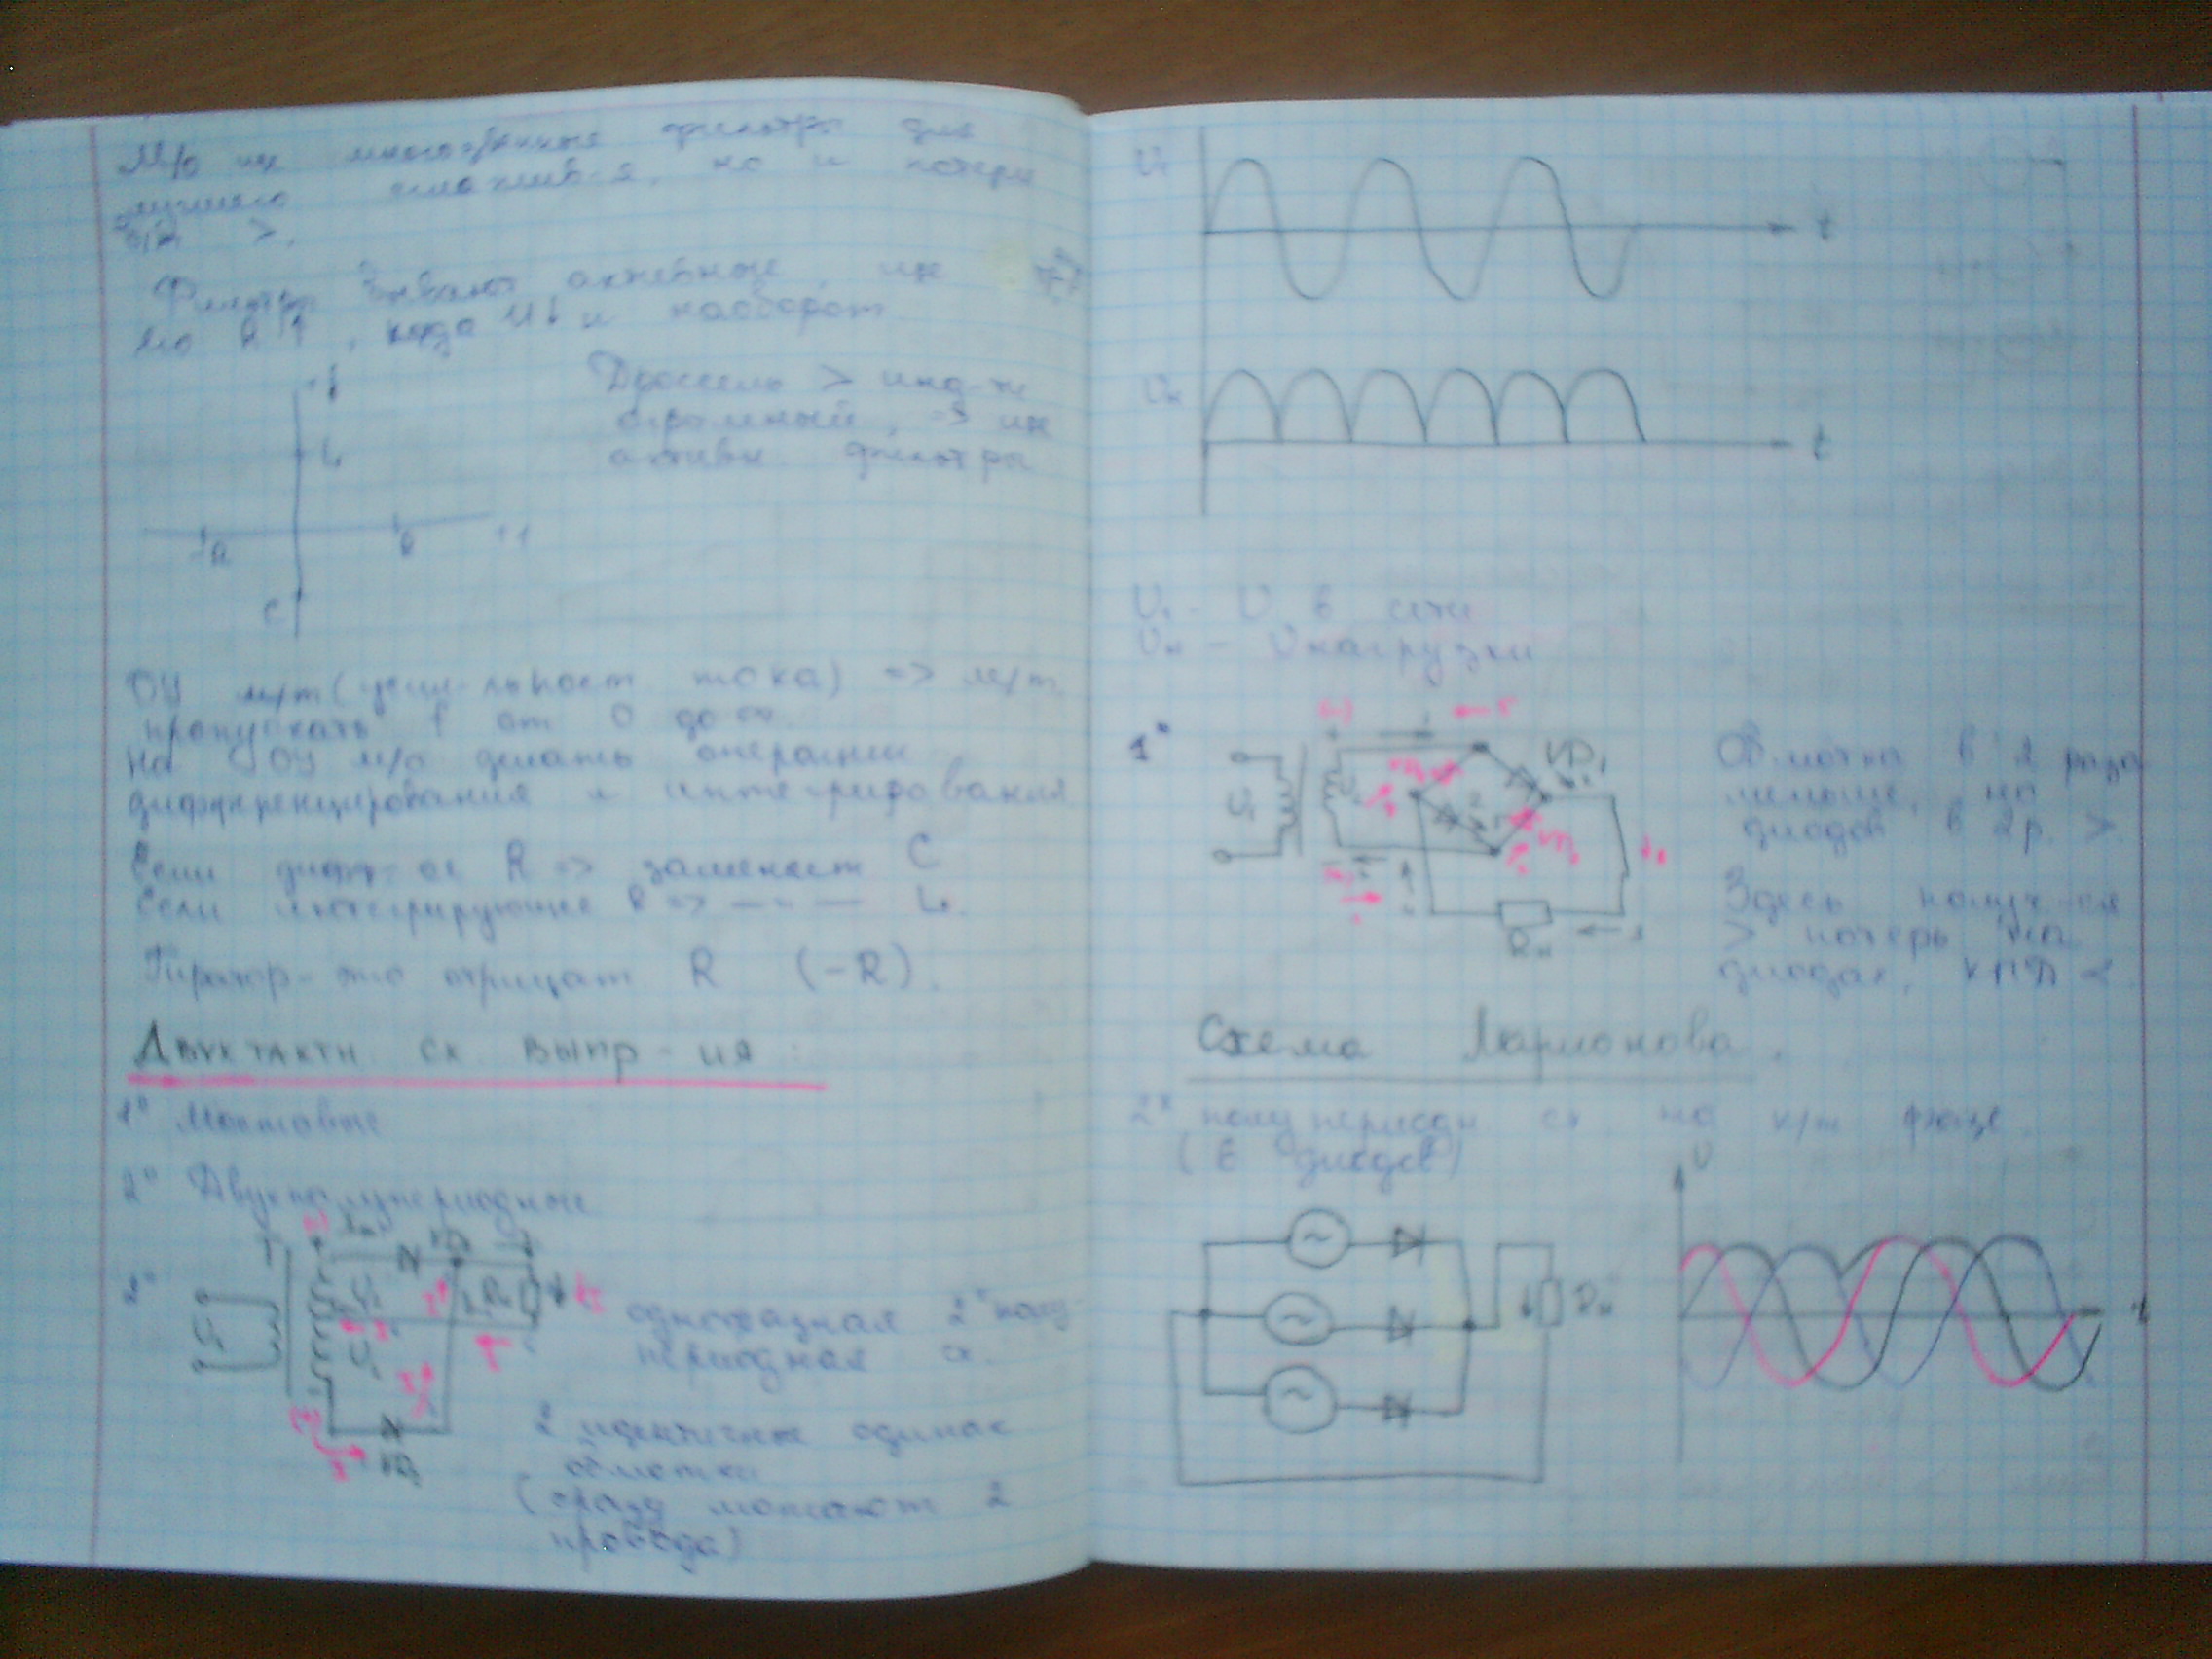 М/о их многозвенные фильтры для
лучшего сглажив-я, но и потери
>.
Фильтры бывают активные, их
R↑, когда U↓ и наоборот
Дроссель > инд-ти
огромный, => их
активн. фильтры
j
L
-R R +1
C
ОУ м/т (усил-ль пост. тока) => м/т
пропускать f от 0 до ∞.
На ОУ м/о делать операции
дифференцирования и интегрирования
Если дифф-ее R => заменяет C
Если интегрирующее R => — „ — L.
Гиратор - это отрицат R (-R).
Двухтактн сх выпр-ия:
1° Мостовые
2° Двухполупериодные
2°
U₁
Rн
VD₂
однофазная 2ˣ полу-
периодная сх.
2 идентичные одинак
обмотки
(сразу мотают 2
провода)
U₁
t
Uн
t
U₁ - U в сети
Uн - U нагрузки
1°
U₁
VD₁
Rн
Обмотка в 2 раза
меньше, но
диодов в 2р. >.
Здесь получ-ся
> потерь на
диодах, КПД <.
Схема Ларионова.
2ˣ полупериодн. сх. на к/т фазе.
(6 диодов)
Rн
U
t